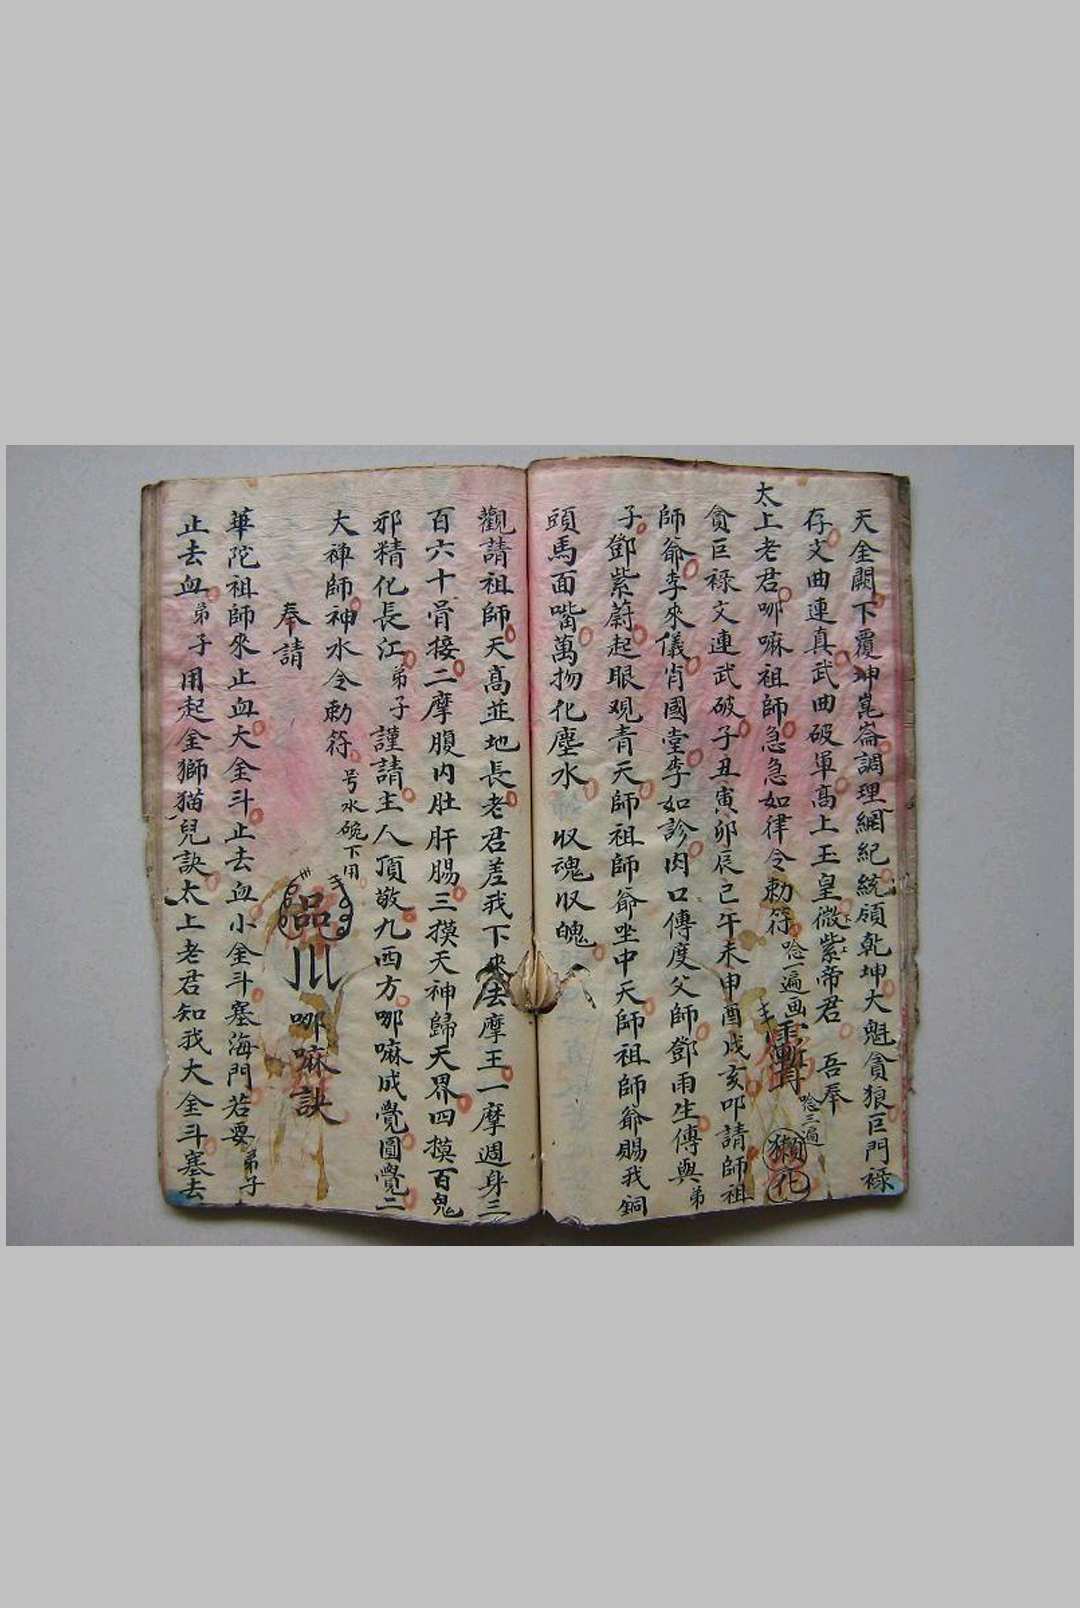 天金闕下覆坤崑崙調理網紀統領乾坤大魁貪狼巨門祿
存文曲連真武曲破軍高上玉皇微紫帝君 吾奉
太上老君哪嘛祖師急急如律令勅符 唸一遍画 唸三遍
貪巨祿文連武破子丑寅卯辰己午未申酉戌亥叩請師祖
師爺李來儀肖國堂李如診肉口傳度父師鄧雨生傳與弟
子鄧紫蔚起眼观青天師祖師爺坐中天師祖師爺賜我銅
頭馬面嘴萬物化塵水 収魂収魄
觀請祖師天高並地長老君差我下來去摩王一摩週身三
百六十骨接二摩腹内肚肝腸三摸天神歸天界四摸百鬼
邪精化長江弟子謹請主人頂敬九西方哪嘛成覺圓覺二
大禅師神水令勅符 号水碗下用
奉請
品川 哪嘛訣
華陀祖師來止血大金斗止去血小金斗塞海門若要弟子
止去血弟子用起金獅猫兒訣太上老君知我大金斗塞去